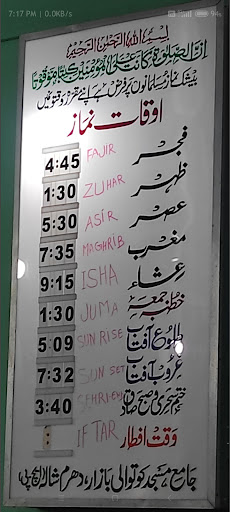 7:17 PM | 0.0KB/s
94
بسم الله الرحمن الرحيم
ان الصلوة كانت على المؤمنين كتابا موقوتا
بیشک نماز مسلمانوں پر فرض ہے اپنے مقرر وقتوں میں
اوقات نماز
4:45 FAJIR فجر
1:30 ZUHAR ظہر
5:30 ASIR عصر
7:35 MAGHRIB مغرب
9:15 ISHA عشاء
1:30 JUMA خطبہ جمعہ
5:09 SUN RISE طلوع آفتاب
7:32 SUN SET غروب آفتاب
3:40 SEHRI-END ختم سحری و صبح صادق
: IFTAR وقت افطار
جامع مسجد کوتوالی بازار، دھرم شالا ایچ پی